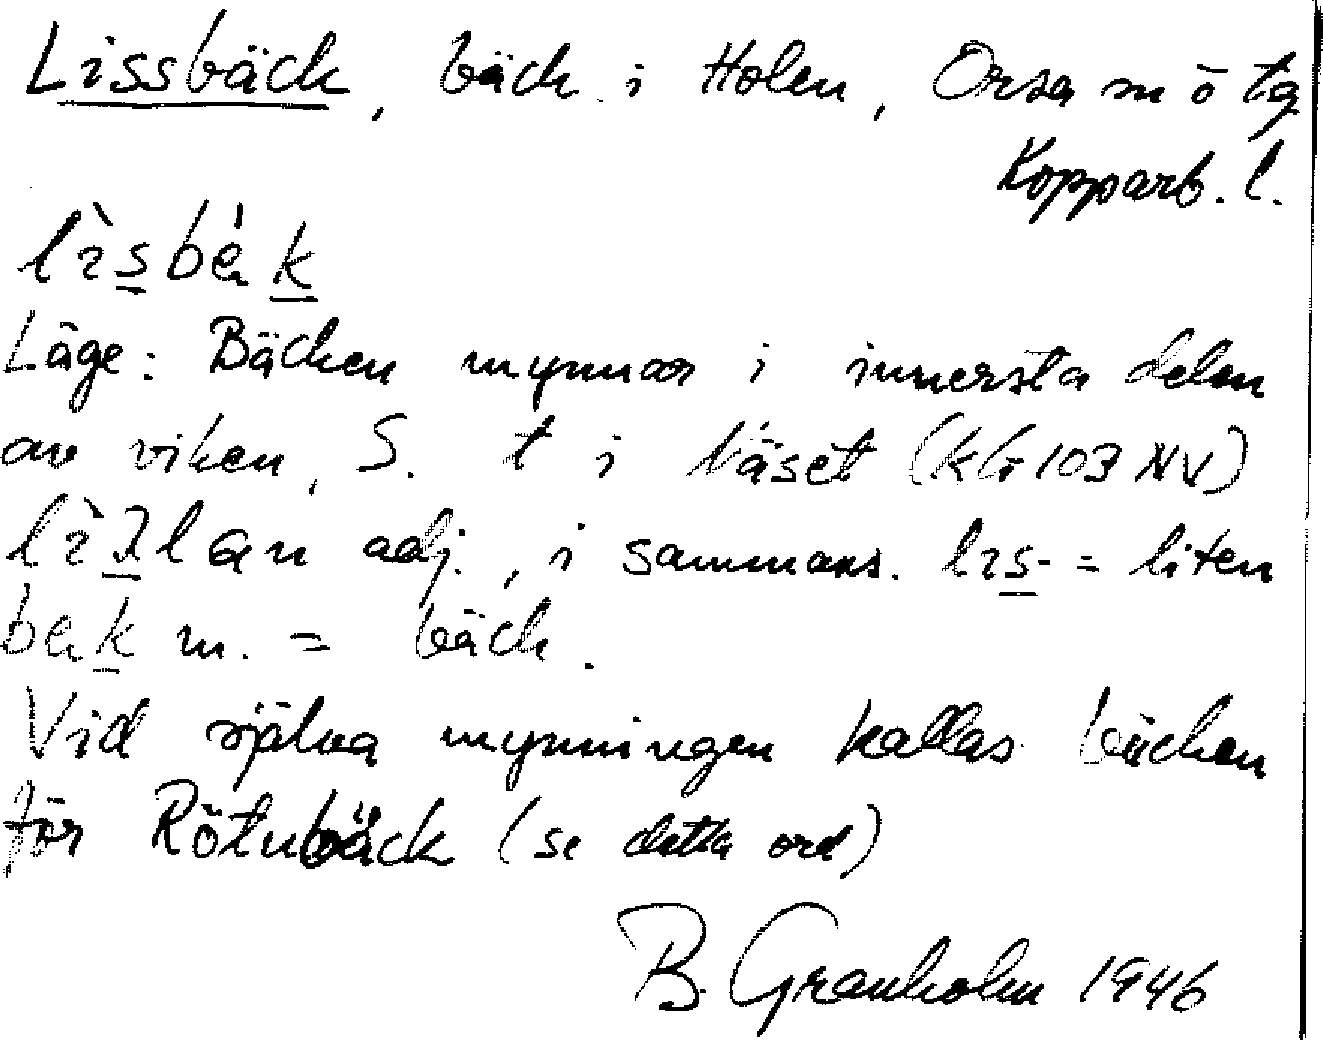 Lissbäck, bäck i Holen, Orsa sn ö tg
Kopparb. l.
lìsbèk
Läge: Bäcken mynnar i innersta delen
av viken, S. t i Näset (kbl 103 NV)
adj., i sammans. lis- = liten
bek m. = bäck.
Vid själva mynningen kallas bäcken
för Rötnbäck (se detta ord)
B. Granholm 1946